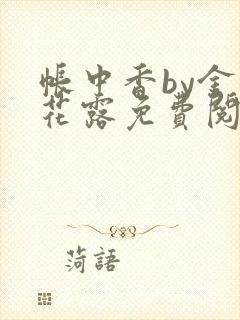 帳中香by金
花露免費閱
菏語